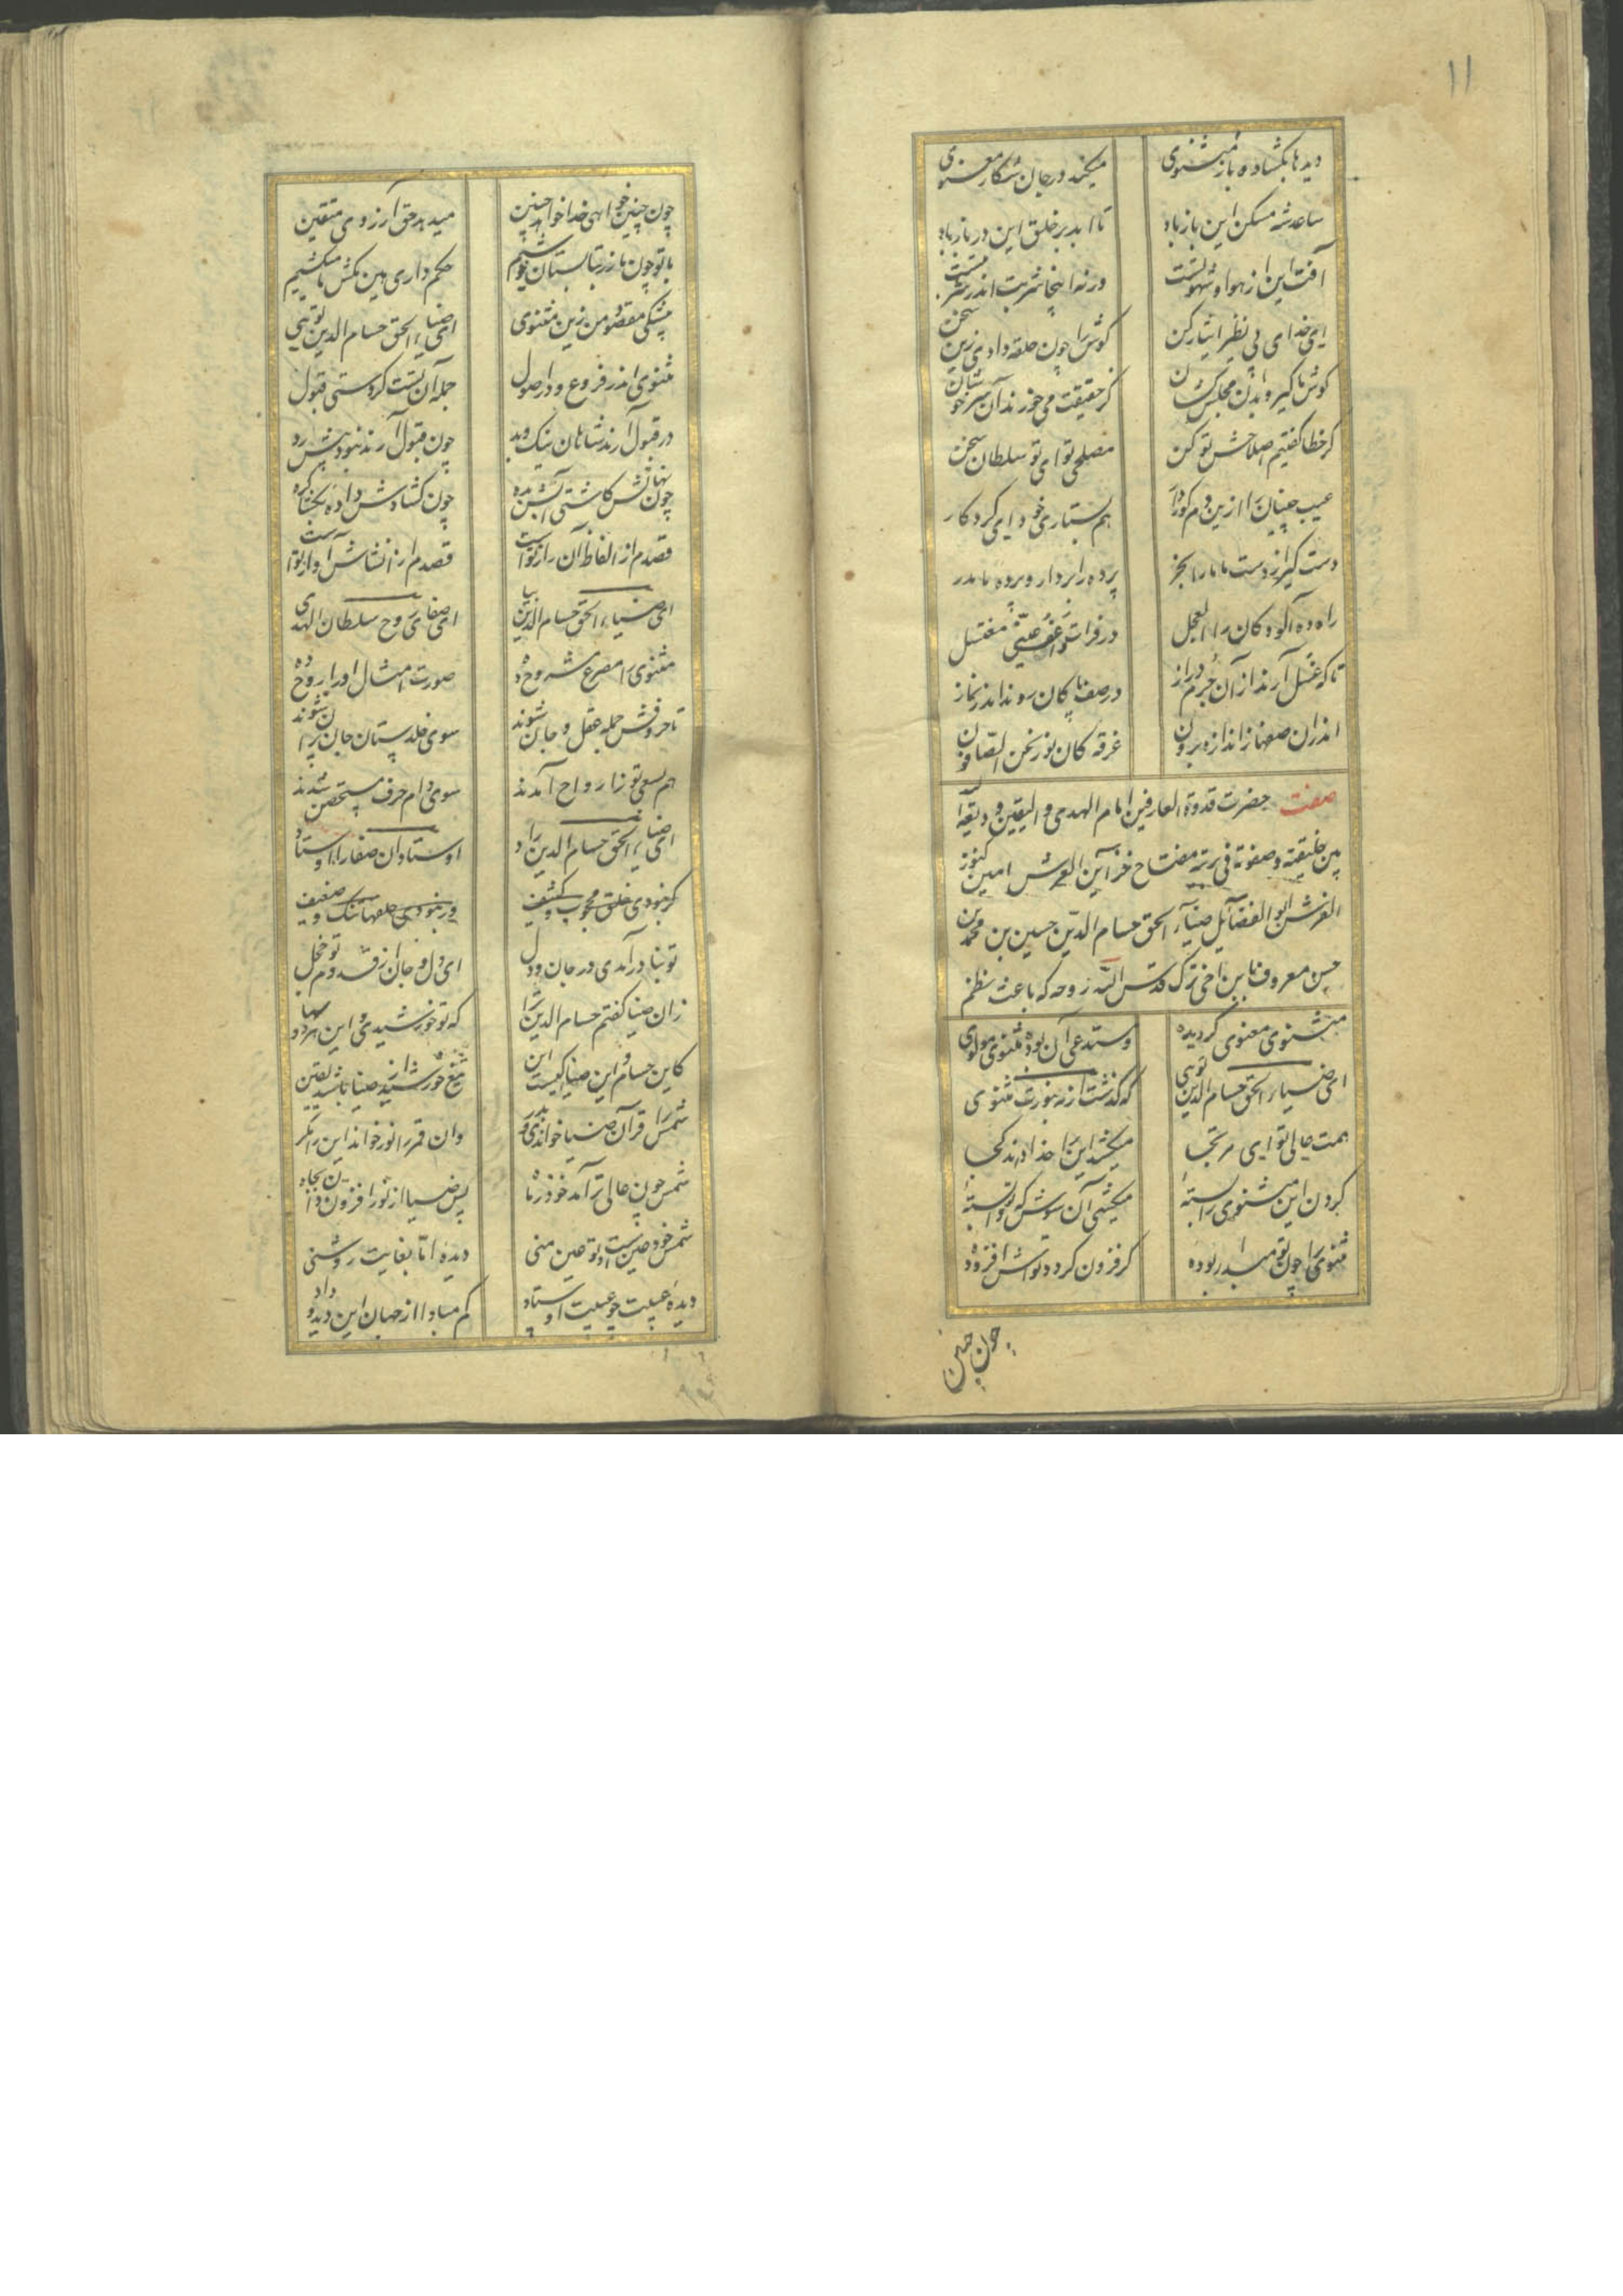 ۱۱
دیدها بکشاده باز مثنوی
میکند در جان شکار معنوی
ساعد شه مسکن این باز باد
تا ابد بر خلق این در باز باد
آفت این در هوا و شهوتست
ورنه اینجا شربت اندر شربتست
ای خدای بی نظیر ایثار کن
کوش را چون حلقه دادی زین سخن
کوش ما کیر و بدان مجلس کشان
کز حقیقت می خورند آن سرخوشان
کر خطا کفتیم اصلاحش تو کن
مصلحی تو ای تو سلطان سخن
عیب چینان را ازین دم کور دار
هم بستاری خود ای کردکار
دست کیر از دست ما ما را بخر
پرده را بردار و پرده ما مدر
راه ده آلودکان را العجل
در فرات عفو و عین مغتسل
تا که غسل آرند از آن جرم دراز
در صف پاکان روند اندر نماز
اندران صفها ز اندازه برون
غرقه کان نور نحن الصافون
صفت حضرت قدوة العارفین امام الهدی و الیقین ودیعة الله
بین خلیقته وصفوته فی بریته مفتاح خزآئن العرش امین کنوز
العرش ابو الفضآئل ضیآء الحق حسام الدین حسین بن محمد بن
حسن معروف بابن اخی ترک قدس الله روحه که باعث نظم
مثنوی معنوی کردیده
ومستدعی آن بوده مثنوی مولوی
ای ضیاء الحق حسام الدین تویی
که کذشت از مه بنورت مثنوی
همت عالی تو ای مرتجا
میکشد این را خدا داند کجا
کردن این مثنوی را بسته
میکشی آن سوش که تو دانسته
مثنوی را چون تو مبدا بوده
کر فزون کردد تواش افزوده
چون چنین
چون چنین خواهی خدا خواهد چنین
میدهد حق آرزوی متقین
با تو چون رز بتابستان خوشیم
حکم داری هین بکش تا میکشیم
همچکین مقصود من زین مثنوی
ای ضیاء الحق حسام الدین تویی
مثنوی اندر فروع و در اصول
جمله آن تست کردستی قبول
در قبول آرند شاهان نیک و بد
چون قبول آرند نبود پیش رد
چون نهالش کاشتی آبش بده
چون کشادش داده بکشا کره
قصدم از الفاظ آن راز تواست
قصدم از انشاش آواز تواست
ای ضیاء الحق حسام الدین بیا
ای صقال روح سلطان الهدی
مثنوی را مسرح مشروح ده
صورت امثال او را روح ده
تا حروفش جمله عقل و جان شوند
سوی خلدستان جان پران شوند
هم بسعی تو ز ارواح آمدند
سوی دام حرف مستحصن شدند
ای ضیاء الحق حسام الدین راد
اوستادان صفا را اوستاد
کر نبودی خلق محجوب و کثیف
ور نبودی حلقها تنک و ضعیف
تو بنا در آمدی در جان و دل
ای دل و جان از قدوم تو خجل
زان ضیا کفتم حسام الدین ترا
که تو خورشیدی و این هر دو سها
کاین حسام و این ضیا یکیست این
تیغ خورشید از ضیا باشد یقین
شمس را قرآن ضیا خواند ای پدر
وان قمر را نور خواند این را نکر
شمس چون عالی تر آمد خود ز ماه
پس ضیا از نور افزون دان بجاه
شمس خود عین است او تو عین منی
دیده اما بغایت روشنی
دیده غیبت چو غیبت اوستاد
کم مبادا از جهان این دید و داد